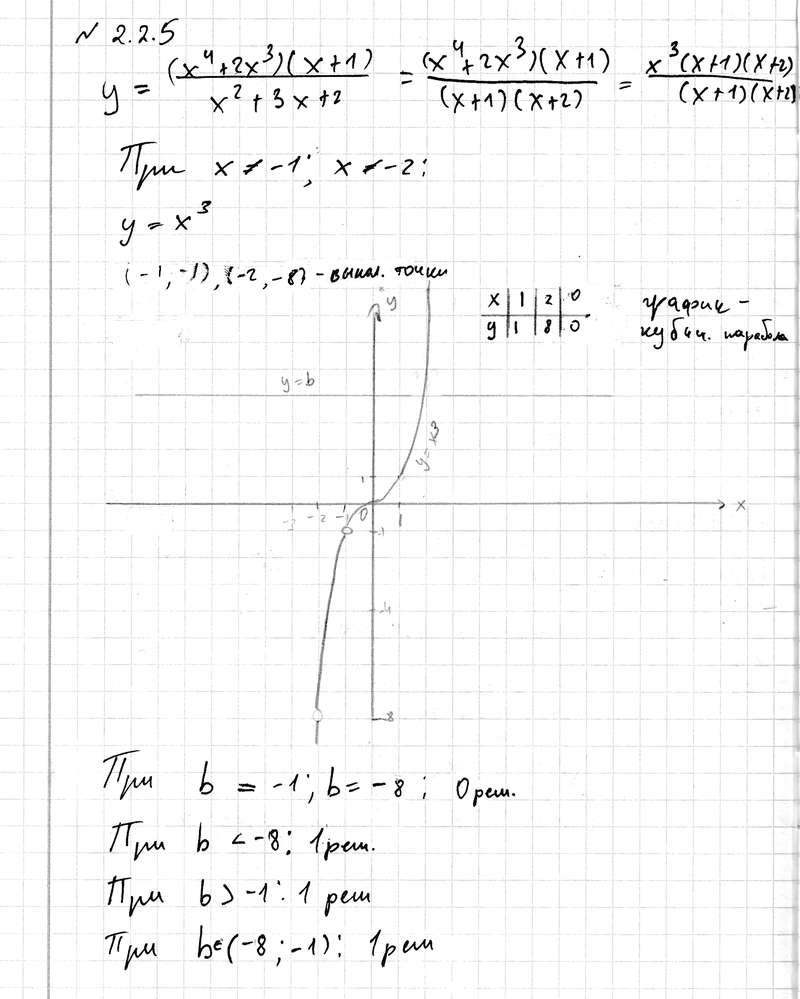 № 2.2.5
y = (x⁴+2x³)(x+1) / x²+3x+2 = (x⁴+2x³)(x+1) / (x+1)(x+2) = x³(x+1)(x+2) / (x+1)(x+2)
При x ≠ -1; x ≠ -2:
y = x³
(-1,-1), (-2,-8) - выкол. точки
x | 1 | 2 | 0
y | 1 | 8 | 0
график -
кубич. парабола
y
y=b
y=x³
1
-3 -2 -1 0 1 x
-1
-4
-8
При b = -1; b = -8; 0 реш.
При b < -8: 1 реш.
При b > -1: 1 реш
При b∈(-8;-1): 1 реш